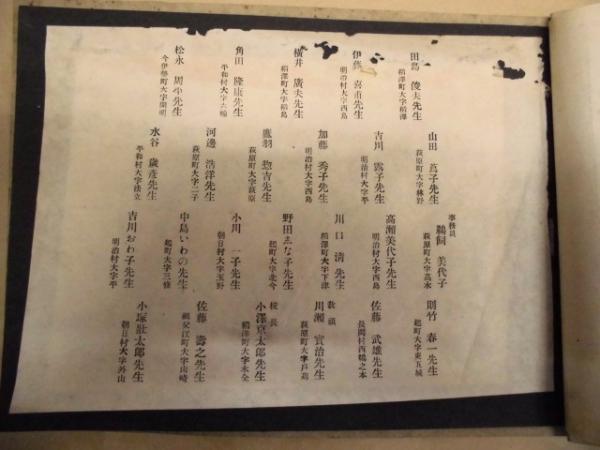 田島 俊夫先生
稲澤町大字稲澤
伊藤 喜甫先生
明治村大字西島
横井 廣夫先生
稲澤町大字稲島
角田 隆康先生
平和村大字六輪
松永 周平先生
今伊勢町大字開明
山田 蔦子先生
萩原町大字林野
吉川 露子先生
明治村大字平
加藤 秀子先生
明治村大字西島
鷹羽 惣吉先生
萩原町大字萩原
河邊 浩洋先生
萩原町大字二子
水谷 歲彥先生
平和村大字法立
事務員
鵜飼 美代子
萩原町大字高木
高瀬美代子先生
明治村大字西島
川口 清先生
稲澤町大字下津
野田まな子先生
起町大字北今
小川 一子先生
朝日村大字玉野
中島いわの先生
起町大字三條
吉川おわ子先生
明治村大字平
則竹 春一先生
起町大字東五城
佐藤 武雄先生
長岡村西鵜之本
教頭
川瀬 實治先生
萩原町大字戸苅
校長
小澤京太郎先生
稲澤町大字末全
佐藤 壽之先生
祖父江町大字山崎
小塚壯太郎先生
朝日村大字外山